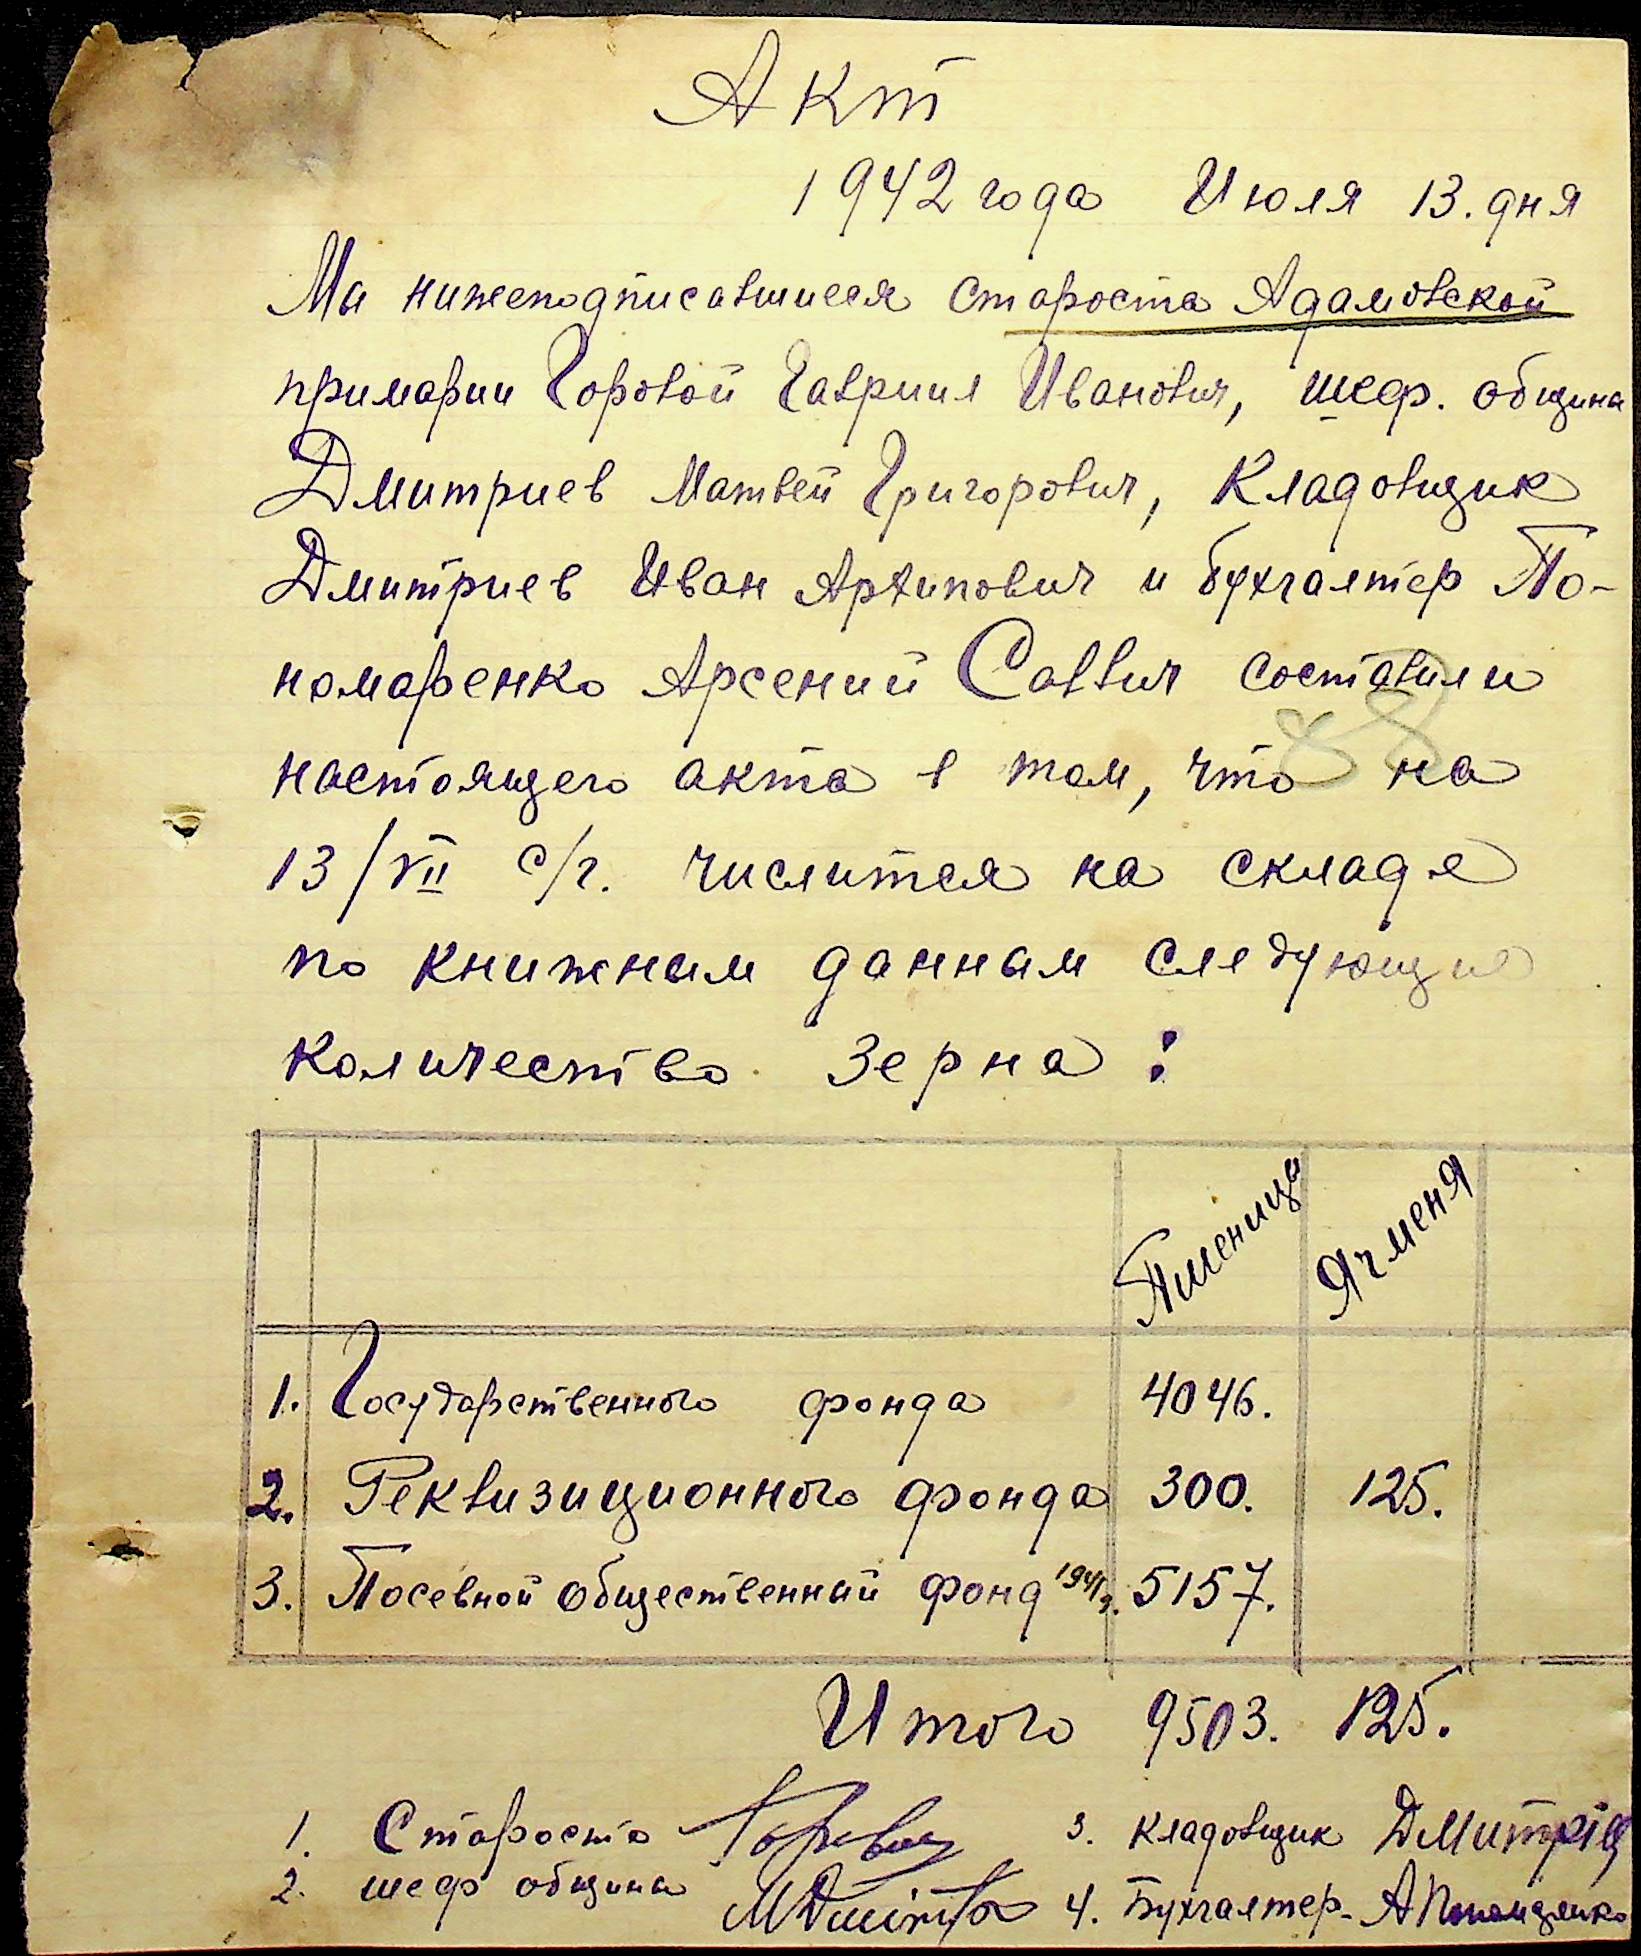 Акт
1942 года Июля 13. дня
Мы нижеподписавшиеся староста Адамовской
примарии Горовой Гавриил Иванович, шеф. община
Дмитриев Матвей Григорович, Кладовщик
Дмитриев Иван Архипович и бухгалтер По-
номаренко Арсений Саввич составили
настоящего акта в том, что на
13/VII с/г. числится на складе
по книжным данным следующие
количество зерна:
Пшеницы Ячменя
1. Государственного фонда 4046.
2. Реквизиционного фонда 300. 125.
3. Посевной общественный фонд 1941г. 5157.
Итого 9503. 125.
1. Староста Горовой 3. Кладовщик Дмитріев
2. шеф община МДмитр 4. Бухгалтер- АПономаренко
88